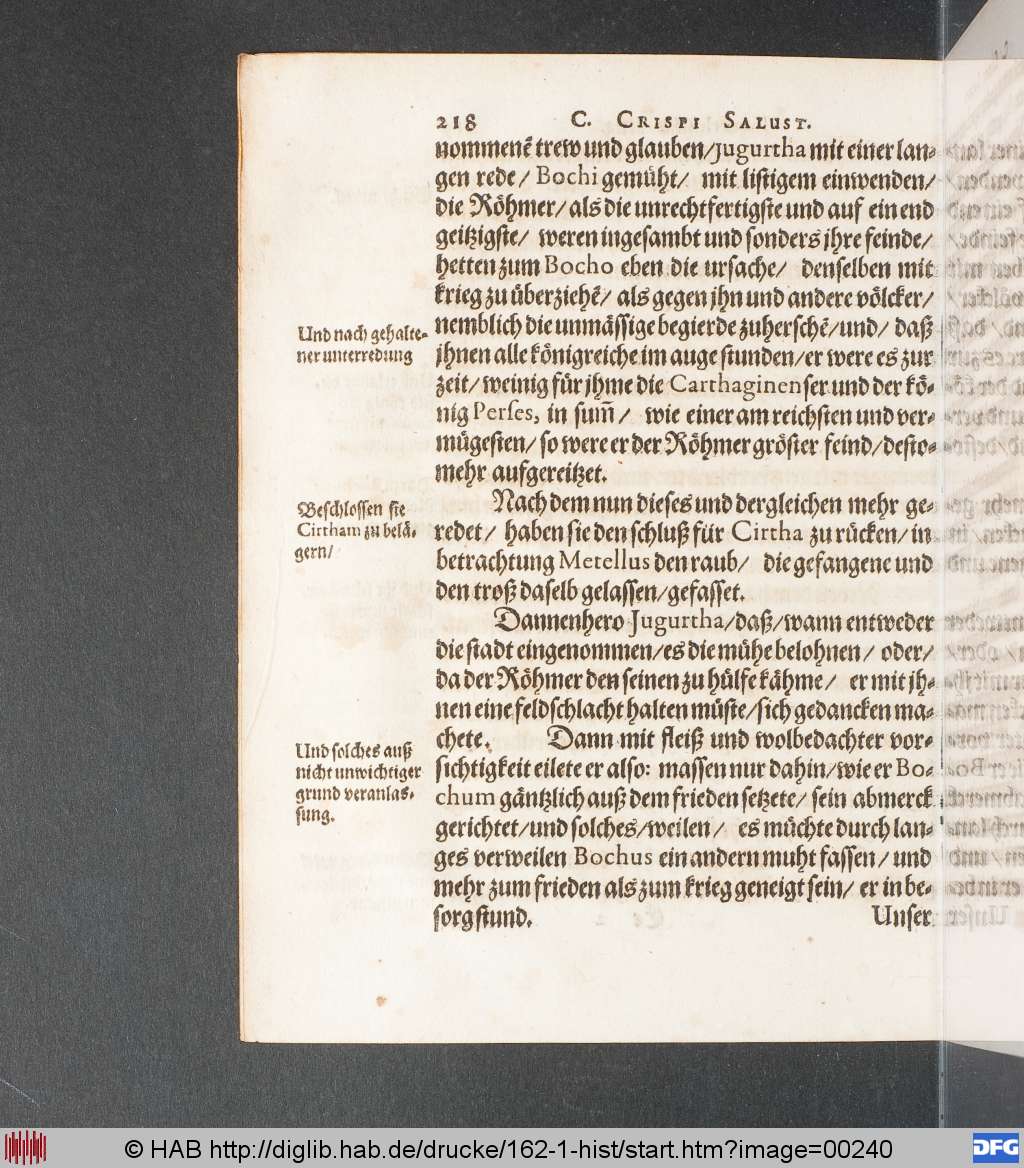 218 C. CRISPI SALUST.
nommenẽ trew und glauben/Jugurtha mit einer lan-
gen rede/ Bochi gemüht/ mit listigem einwenden/
die Röhmer/ als die unrechtfertigste und auf ein end
geitzigste/ weren ingesambt und sonders jhre feinde/
hetten zum Bocho eben die ursache/ denselben mit
krieg zu überziehẽ/ als gegen jhn und andere völcker/
nemblich die unmässige begierde zuherschẽ/und/ daß
jhnen alle königreiche im auge stunden/er were es zur
zeit/ weinig für jhme die Carthaginenser und der kö-
nig Perses, in sum̃/ wie einer am reichsten und ver-
mügesten/ so were er der Röhmer gröster feind/desto-
mehr aufgereitzet.
Und nach gehalte-
ner unterredung
Nach dem nun dieses und dergleichen mehr ge-
redet/ haben sie den schluß für Cirtha zu rücken/ in
betrachtung Metellus den raub/ die gefangene und
den troß daselb gelassen/gefasset.
Beschlossen sie
Cirtham zu belä-
gern/
Dannenhero Jugurtha/daß/wann entweder
die stadt eingenommen/es die mühe belohnen/ oder/
da der Röhmer den seinen zu hülfe kähme/ er mit jh-
nen eine feldschlacht halten müste/sich gedancken ma-
chete. Dann mit fleiß und wolbedachter vor-
sichtigkeit eilete er also: massen nur dahin/wie er Bo-
chum gäntzlich auß dem frieden setzete/ sein abmerck
gerichtet/und solches/weilen/ es müchte durch lan-
ges verweilen Bochus ein andern muht fassen/ und
mehr zum frieden als zum krieg geneigt sein/ er in be-
sorg stund.
Und solches auß
nicht unwichtiger
grund veranlas-
sung.
Unser
© HAB http://diglib.hab.de/drucke/162-1-hist/start.htm?image=00240
DFG